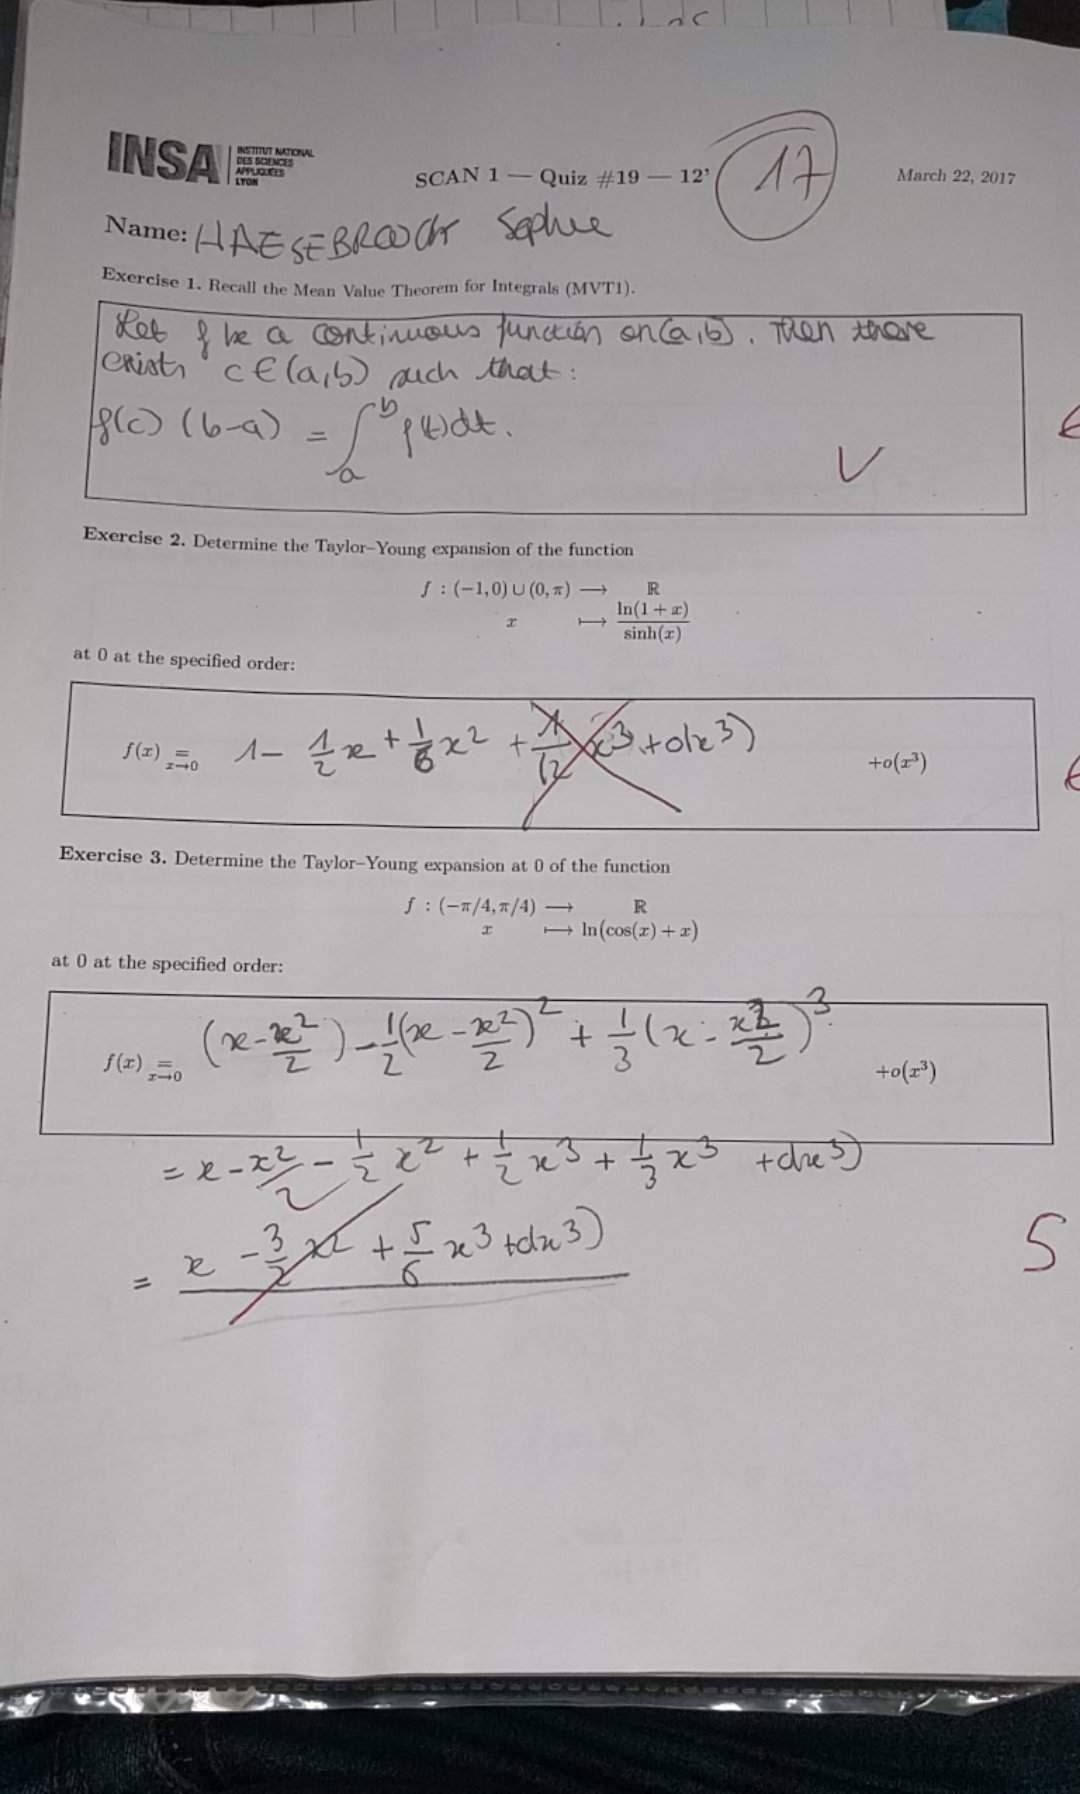 INSA
INSTITUT NATIONAL
DES SCIENCES
APPLIQUÉES
LYON
SCAN 1 — Quiz #19 — 12'
17
March 22, 2017
Name: HAESEBROUCK Sophie
Exercise 1. Recall the Mean Value Theorem for Integrals (MVT1).
Let f be a continuous function on (a,b). Then there
exists c ∈ (a,b) such that:
f(c) (b-a) = ∫_a^b f(t)dt.
V
Exercise 2. Determine the Taylor–Young expansion of the function
f : (−1,0) ∪ (0,π) ⟶ ℝ
x ⟼ ln(1 + x)/sinh(x)
at 0 at the specified order:
f(x) =_{x→0} 1 - 1/2 x + 1/6 x² + 1/12 x³ + o(x³) +o(x³)
Exercise 3. Determine the Taylor–Young expansion at 0 of the function
f : (−π/4, π/4) ⟶ ℝ
x ⟼ ln(cos(x) + x)
at 0 at the specified order:
f(x) =_{x→0} (x - x²/2) - 1/2 (x - x²/2)² + 1/3 (x - x²/2)³ +o(x³)
= x - x²/2 - 1/2 x² + 1/2 x³ + 1/3 x³ + o(x³)
= x - 3/2 x² + 5/6 x³ + o(x³)
5